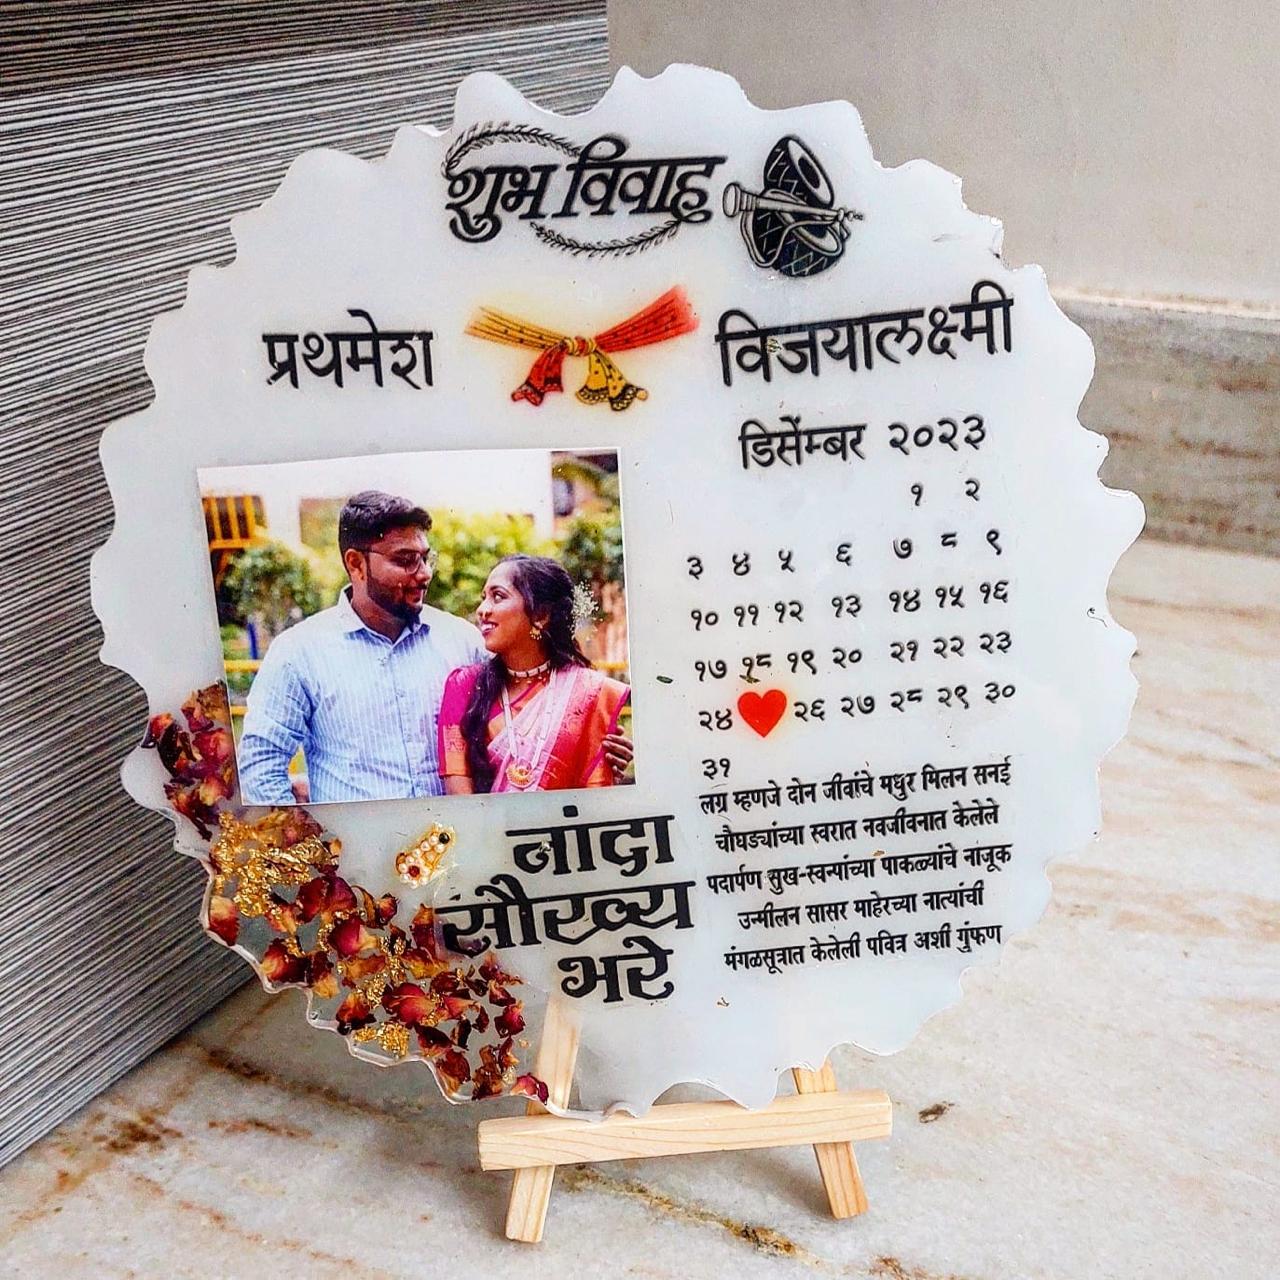 शुभ विवाह
प्रथमेश विजयालक्ष्मी
डिसेंम्बर २०२३
१ २
३ ४ ५ ६ ७ ८ ९
१० ११ १२ १३ १४ १५ १६
१७ १८ १९ २० २१ २२ २३
२४ २६ २७ २८ २९ ३०
३१
लग्न म्हणजे दोन जीवांचे मधुर मिलन सनई
चौघड्यांच्या स्वरात नवजीवनात केलेले
पदार्पण सुख-स्वप्नांच्या पाकळ्यांचे नाजूक
उन्मीलन सासर माहेरच्या नात्यांची
मंगळसूत्रात केलेली पवित्र अशी गुंफण
नांदा
सौख्य
भरे